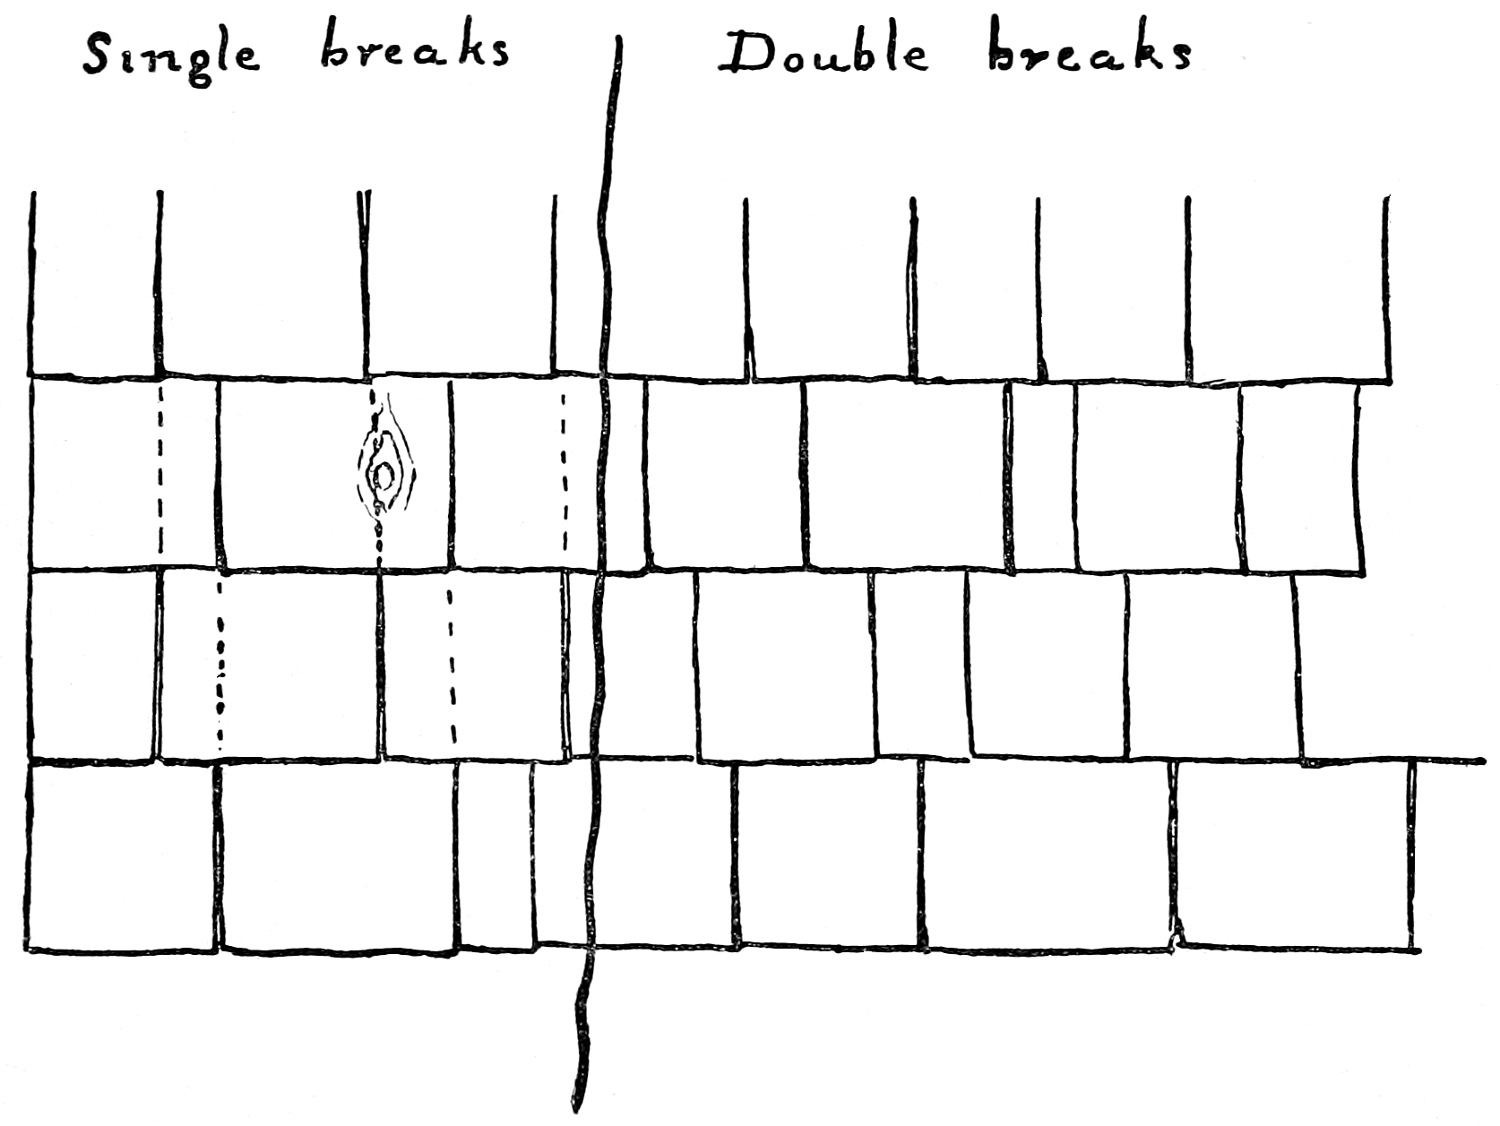 Single breaks
Double breaks